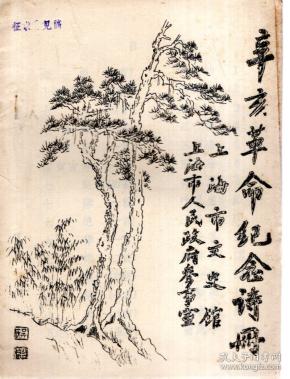 征求意见稿
辛亥革命纪念诗册
上海市文史馆
上海市人民政府参事室